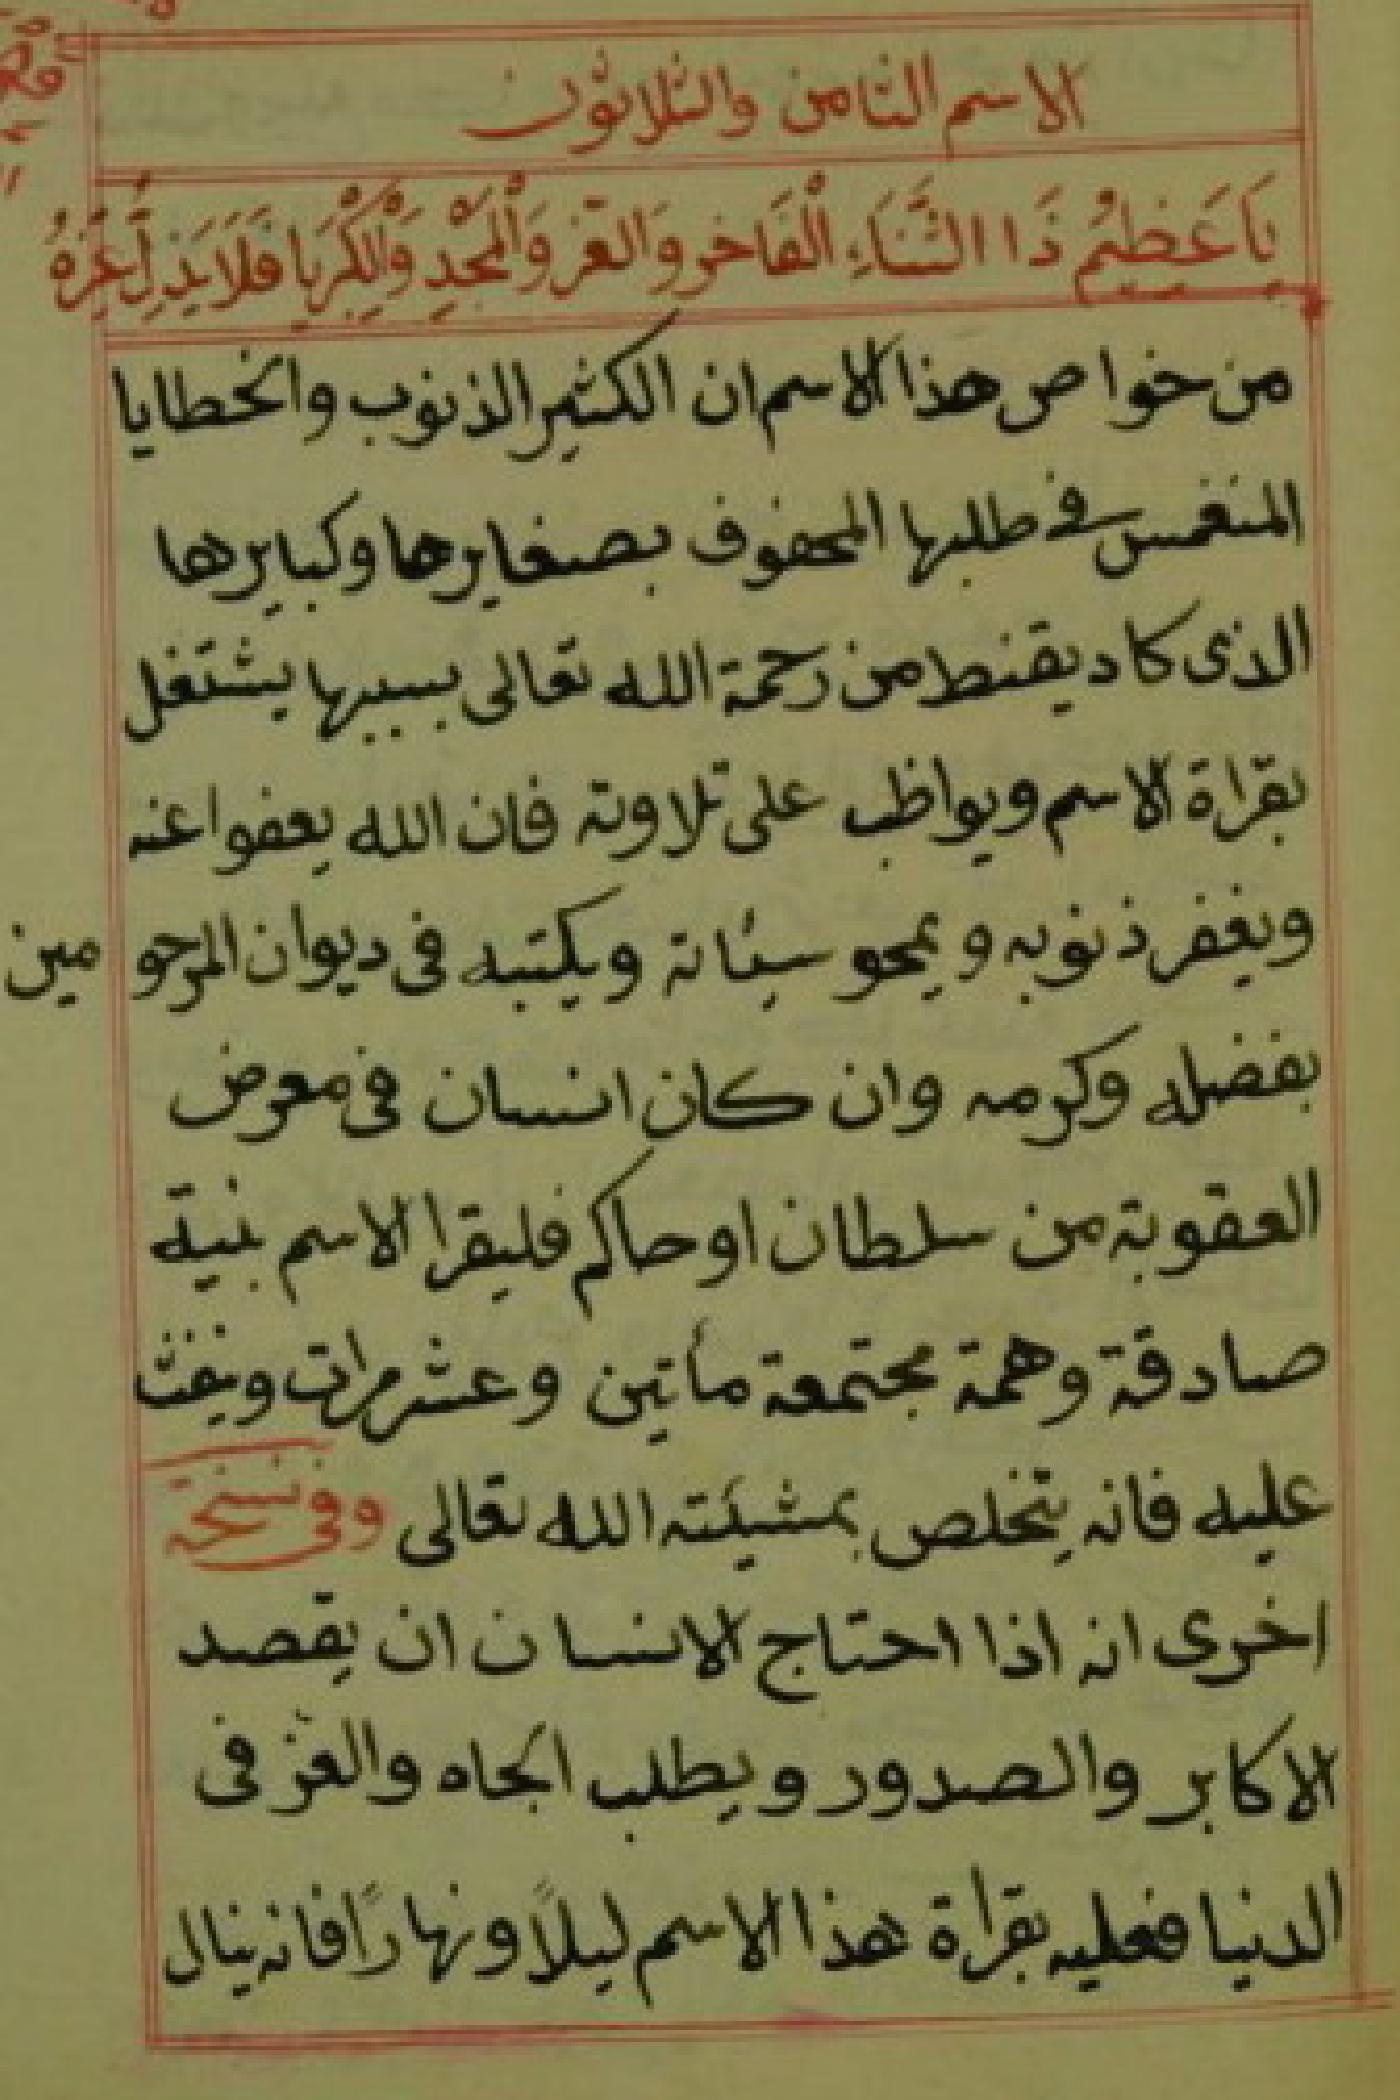 الاسم الثامن والثلاثون
يَا عَظِيمُ ذَا الثَّنَاءِ الْفَاخرِ وَالعزِّ وَالْمَجْدِ وَالْكِبْرِيَا فَلَا يَذِلُّ عِزُهُ
من خواص هذا الاسم ان الكثير الذنوب والخطايا
المنغمس فى طلبها المحفوف بصغايرها وكبايرها
الذى كاد يقنط من رحمة الله تعالى بسببها يشتغل
بقراة الاسم ويواظب على تلاوته فان الله يعفوا عنه
ويغفر ذنوبه ويمحو سيئاته ويكتبه فى ديوان المرحومين
بفضله وكرمه وان كان انسان فى معرض
العقوبة من سلطان او حاكم فليقرا الاسم بنية
صادقة وهمة مجتمعة مأتين وعشر مرات وينفث
عليه فانه يتخلص بمشيئته الله تعالى وفى نسخة
اخرى انه اذا احتاج الانسان ان يقصد
الاكابر والصدور ويطلب الجاه والعز فى
الدنيا فعليه بقراة هذا الاسم ليلاً ونهاراً فانه ينال